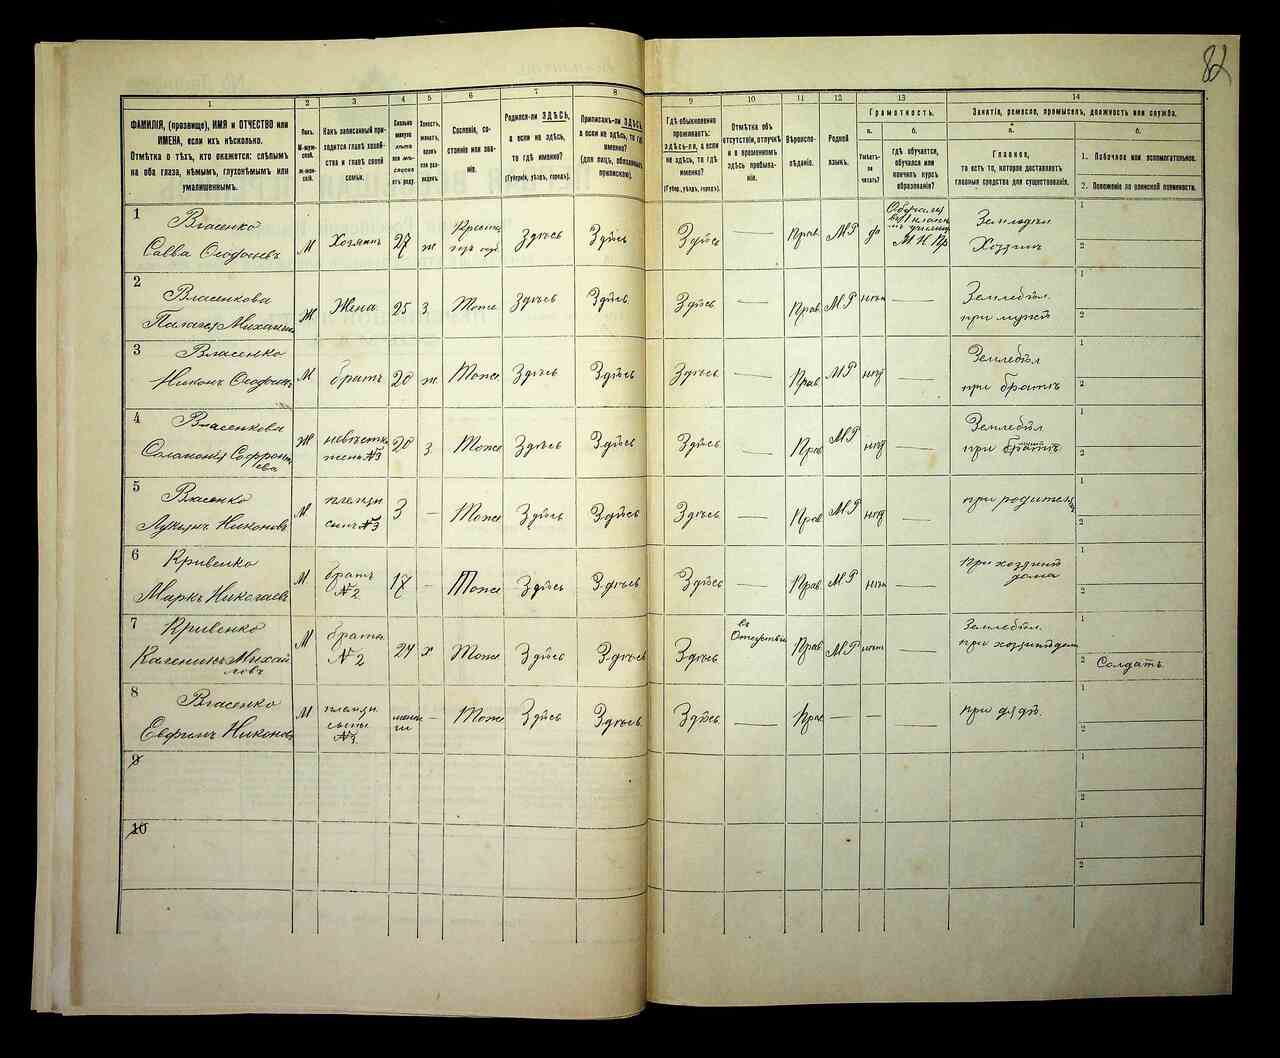 82
1
2
3
4
5
6
7
8
9
10
11
12
13
14
ФАМИЛІЯ, (прозвище), ИМЯ и ОТЧЕСТВО или
ИМЕНА, если ихъ нѣсколько.
Отмѣтка о тѣхъ, кто окажется: слѣпымъ
на оба глаза, нѣмымъ, глухонѣмымъ или
умалишеннымъ.
Полъ.
М-муж-
ской.
Ж-жен-
скій.
Какъ записанный при-
ходится главѣ хозяй-
ства и главѣ своей
семьи.
Сколько
минуло
лѣтъ
или мѣ-
сяцевъ
отъ роду.
Холостъ,
женатъ,
вдовъ
или раз-
веденъ.
Сословіе, со-
стояніе или зва-
ніе.
Родился-ли ЗДѢСЬ,
а если не здѣсь,
то гдѣ именно?
(Губернія, уѣздъ, городъ).
Приписанъ-ли ЗДѢСЬ,
а если не здѣсь, то гдѣ
именно?
(для лицъ, обязанныхъ
припискою).
Гдѣ обыкновенно
проживаетъ:
здѣсь-ли, а если
не здѣсь, то гдѣ
именно?
(Губер., уѣздъ, городъ).
Отмѣтка объ
отсутствіи, отлучкѣ
и о временномъ
здѣсь пребыва-
ніи.
Вѣроиспо-
вѣданіе.
Родной
языкъ.
Грамотность.
а.
Умѣетъ-
ли
читать?
б.
гдѣ обучается,
обучался или
кончилъ курсъ
образованія?
Занятія, ремесло, промыселъ, должность или служба.
а.
Главное,
то есть то, которое доставляетъ
главныя средства для существованія.
б.
1. Побочное или вспомогательное.
2. Положеніе по воинской повинности.
1
Власенко
Савва Ѳеодосіевъ
М
Хозяинъ
27
ж
Здѣсь
Здѣсь
Здѣсь
—
Прав.
МР
да
М Н Пр
Земледѣл
Хозяинъ
1
2
2
Власенкова
Ж
Жена
25
З
Тоже
Здѣсь
Здѣсь
Здѣсь
—
Прав
МР
—
Земледѣл.
при мужѣ
1
2
3
Власенко
М
братъ
20
ж
Тоже
Здѣсь
Здѣсь
Здѣсь
—
Прав
МР
—
Земледѣл
при братѣ
1
2
4
Власенкова
Ж
невѣстка
жена №3
20
З
Тоже
Здѣсь
Здѣсь
Здѣсь
—
Прав
МР
—
Земледѣл
при братѣ
1
2
5
Власенко
М
сынъ №3
3
—
Тоже
Здѣсь
Здѣсь
Здѣсь
—
Прав
МР
—
1
2
6
Кривенко
Маркъ
М
братъ
№2
17
—
Тоже
Здѣсь
Здѣсь
Здѣсь
—
Прав
МР
—
дома
1
2
7
Кривенко
Каленикъ Михай
ловъ
М
братъ
№2
24
х
Тоже
Здѣсь
Здѣсь
Здѣсь
въ
Прав
МР
—
Земледѣл.
1
2 Солдатъ
8
Власенко
Никоновъ
М
—
Тоже
Здѣсь
Здѣсь
Здѣсь
—
Прав
—
—
—
при дядѣ.
1
2
9
1
2
10
1
2